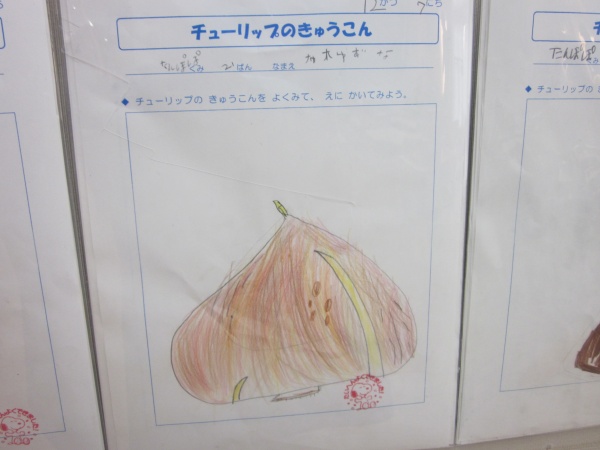 12がつ 7にち
チューリップのきゅうこん
たんぽぽぐみ 2ばん なまえ
◆ チューリップの きゅうこんを よくみて、 えに かいてみよう。
たんぽぽ
◆ チューリップの